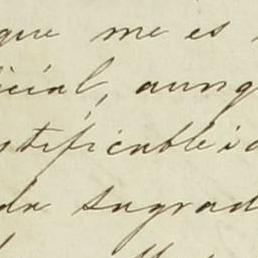 que me es
icial, aunq
stificable i
da sagrad